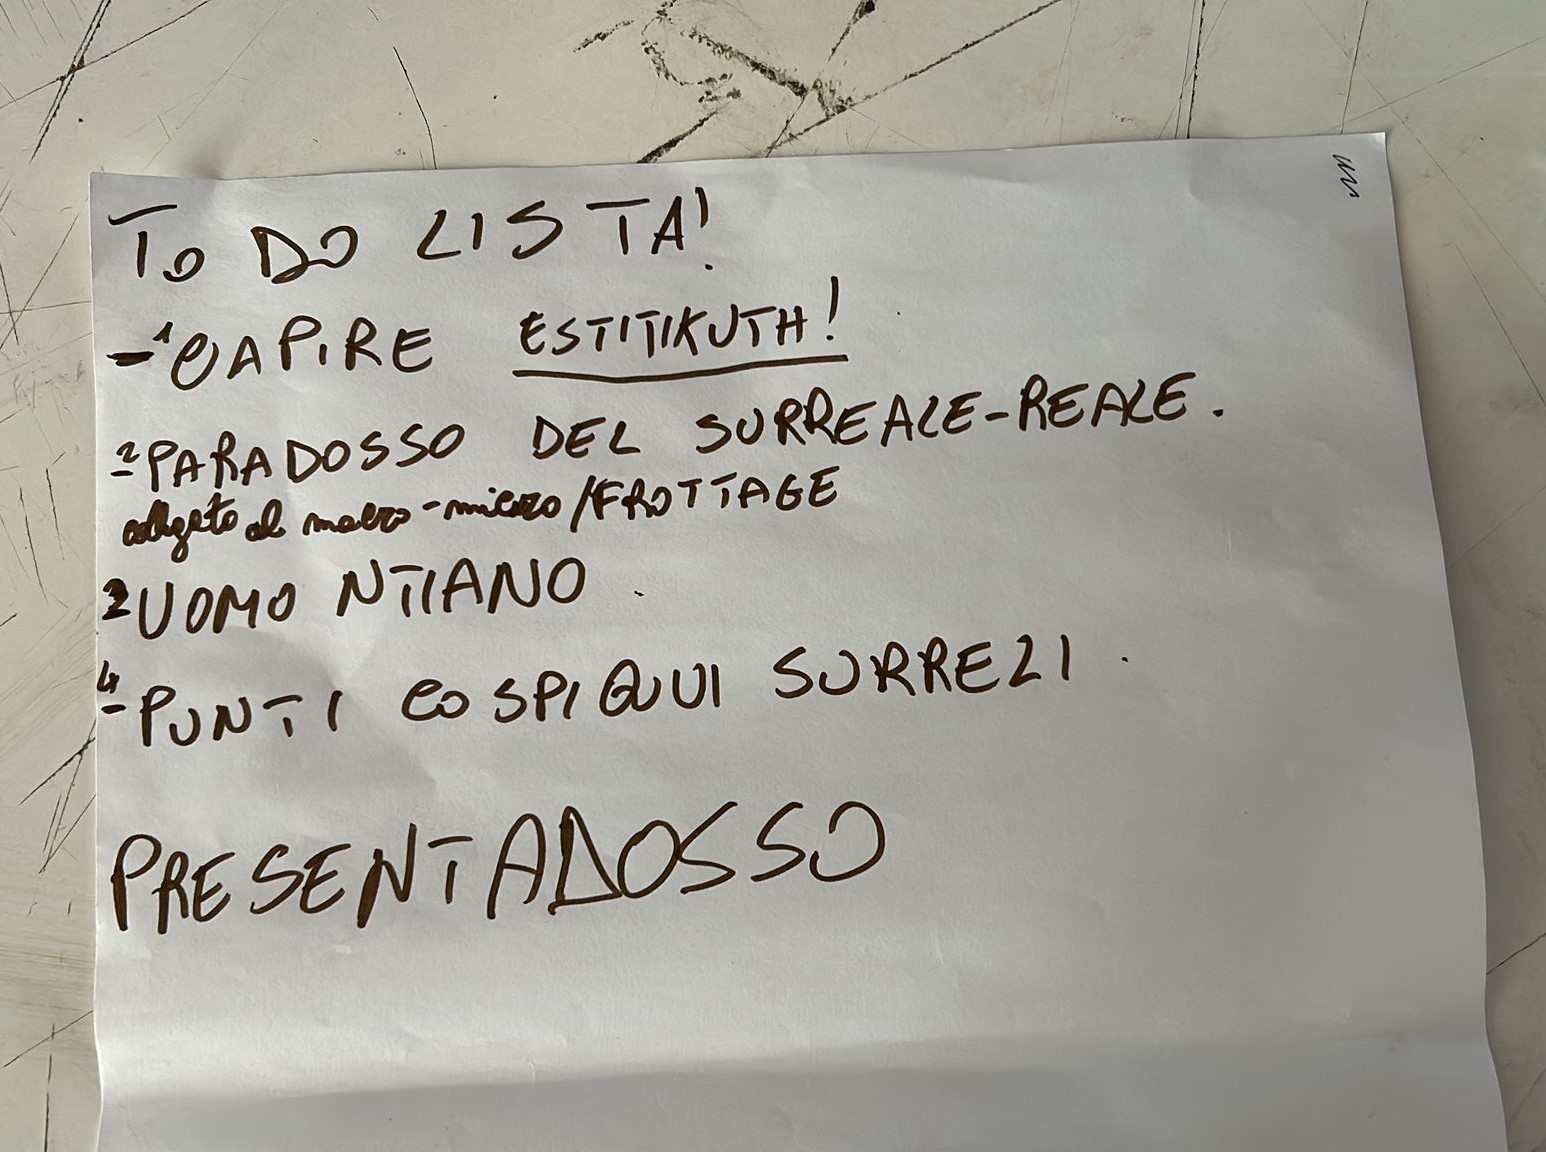 To DO LISTA!
-1 CAPIRE ESTITIKUTH!
2 PARADOSSO DEL SURREALE-REALE.
al macro-micro/FROTTAGE
3 UOMO NTIANO.
4 PUNTI COSPIQUUI SURREZI.
PRESENTADOSSO